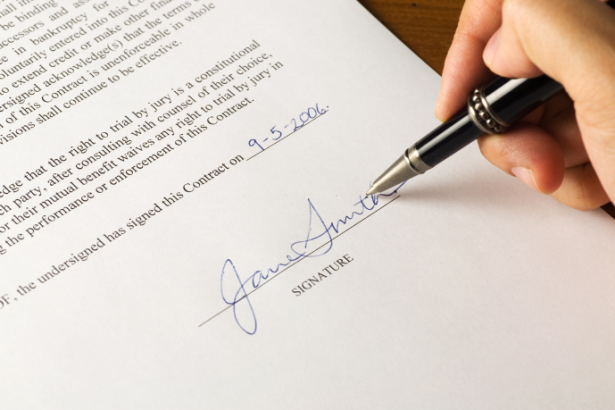 be binding
successors and ass
in bankruptcy for
voluntarily entered into this Co
to extend credit or make other finan
undersigned acknowledge(s) that the terms
of this Contract is unenforceable in whole
provisions shall continue to be effective.
edge that the right to trial by jury is a constitutional
ch party, after consulting with counsel of their choice,
for their mutual benefit waives any right to trial by jury in
g the performance or enforcement of this Contract.
OF, the undersigned has signed this Contract on 9-5-2006.
Jane Smith
SIGNATURE